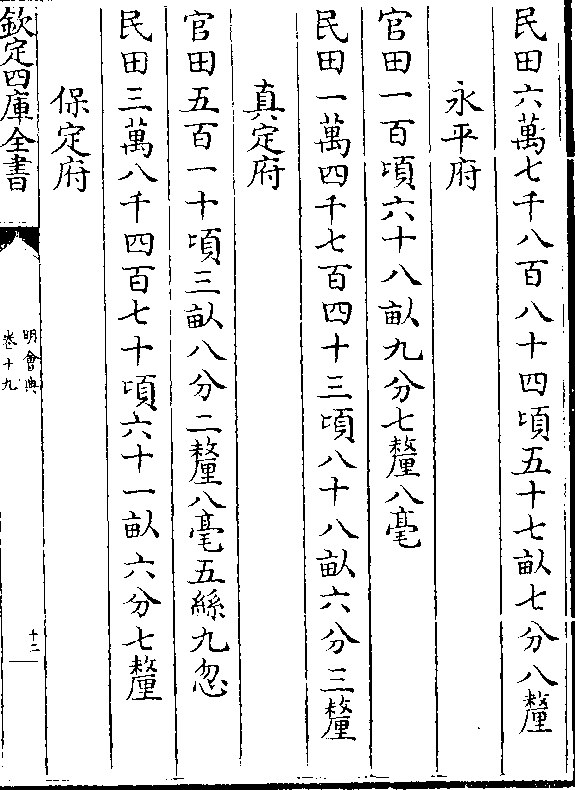 民田六萬七千八百八十四頃五十七畝七分八釐
永平府
官田一百頃六十八畝九分七釐八毫
民田一萬四千七百四十三頃八十八畝六分三釐
真定府
官田五百一十頃三畝八分二釐八毫五絲九忽
民田三萬八千四百七十頃六十一畝六分七釐
保定府
欽定四庫全書
明會典
卷十九
十二